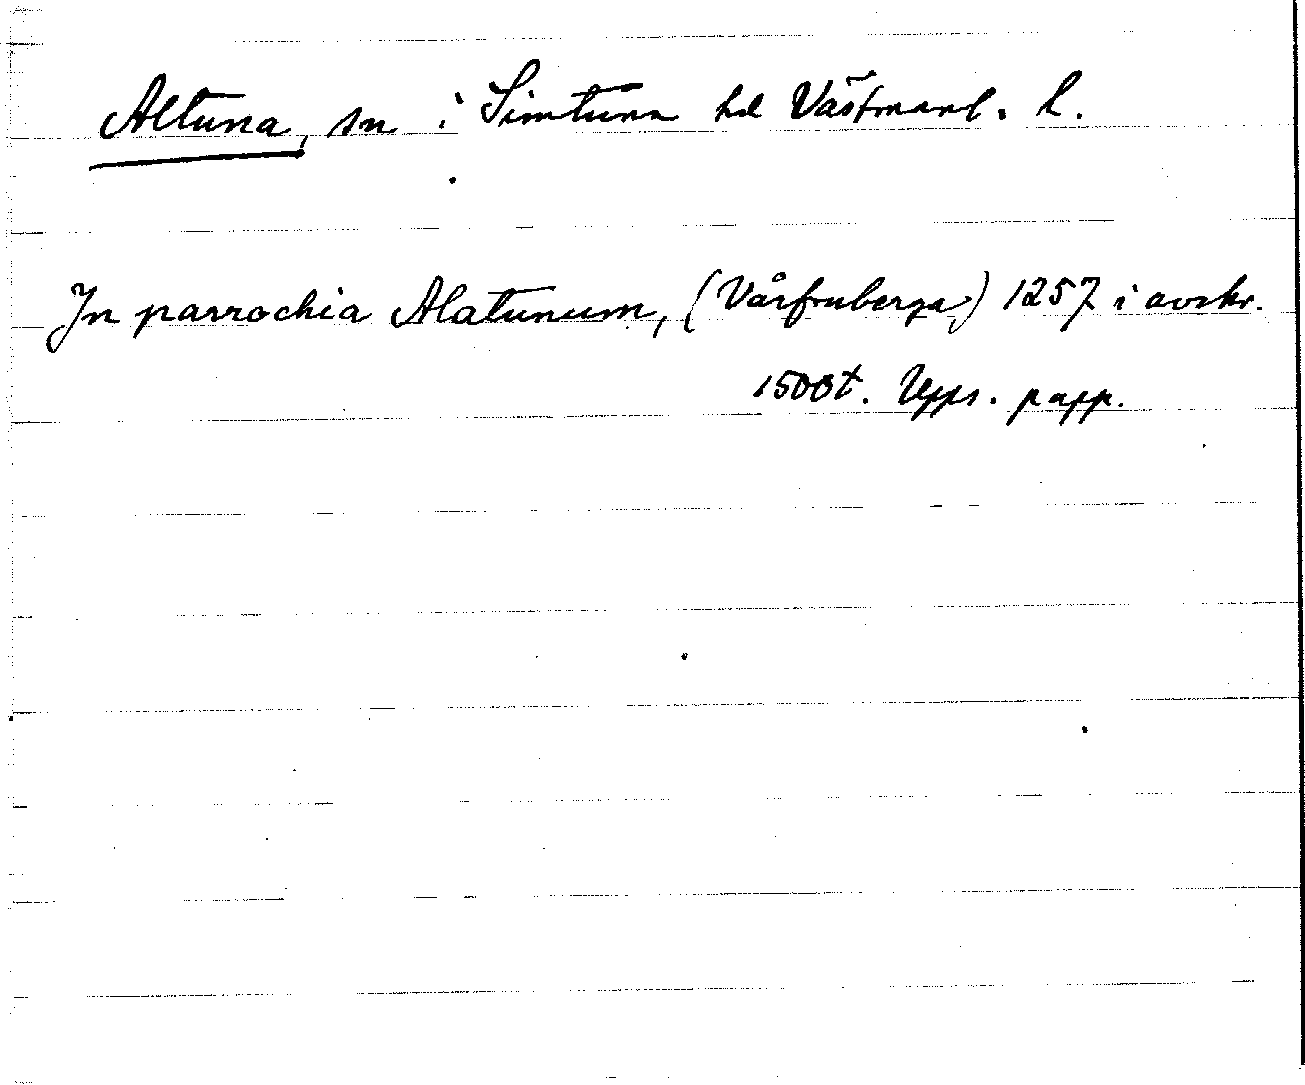 Altuna, sn i Simtuna hd Västmanl. l.
In parrochia Alatunum, (Vårfruberga) 1257 i avskr.
1500t. Upps. papp.